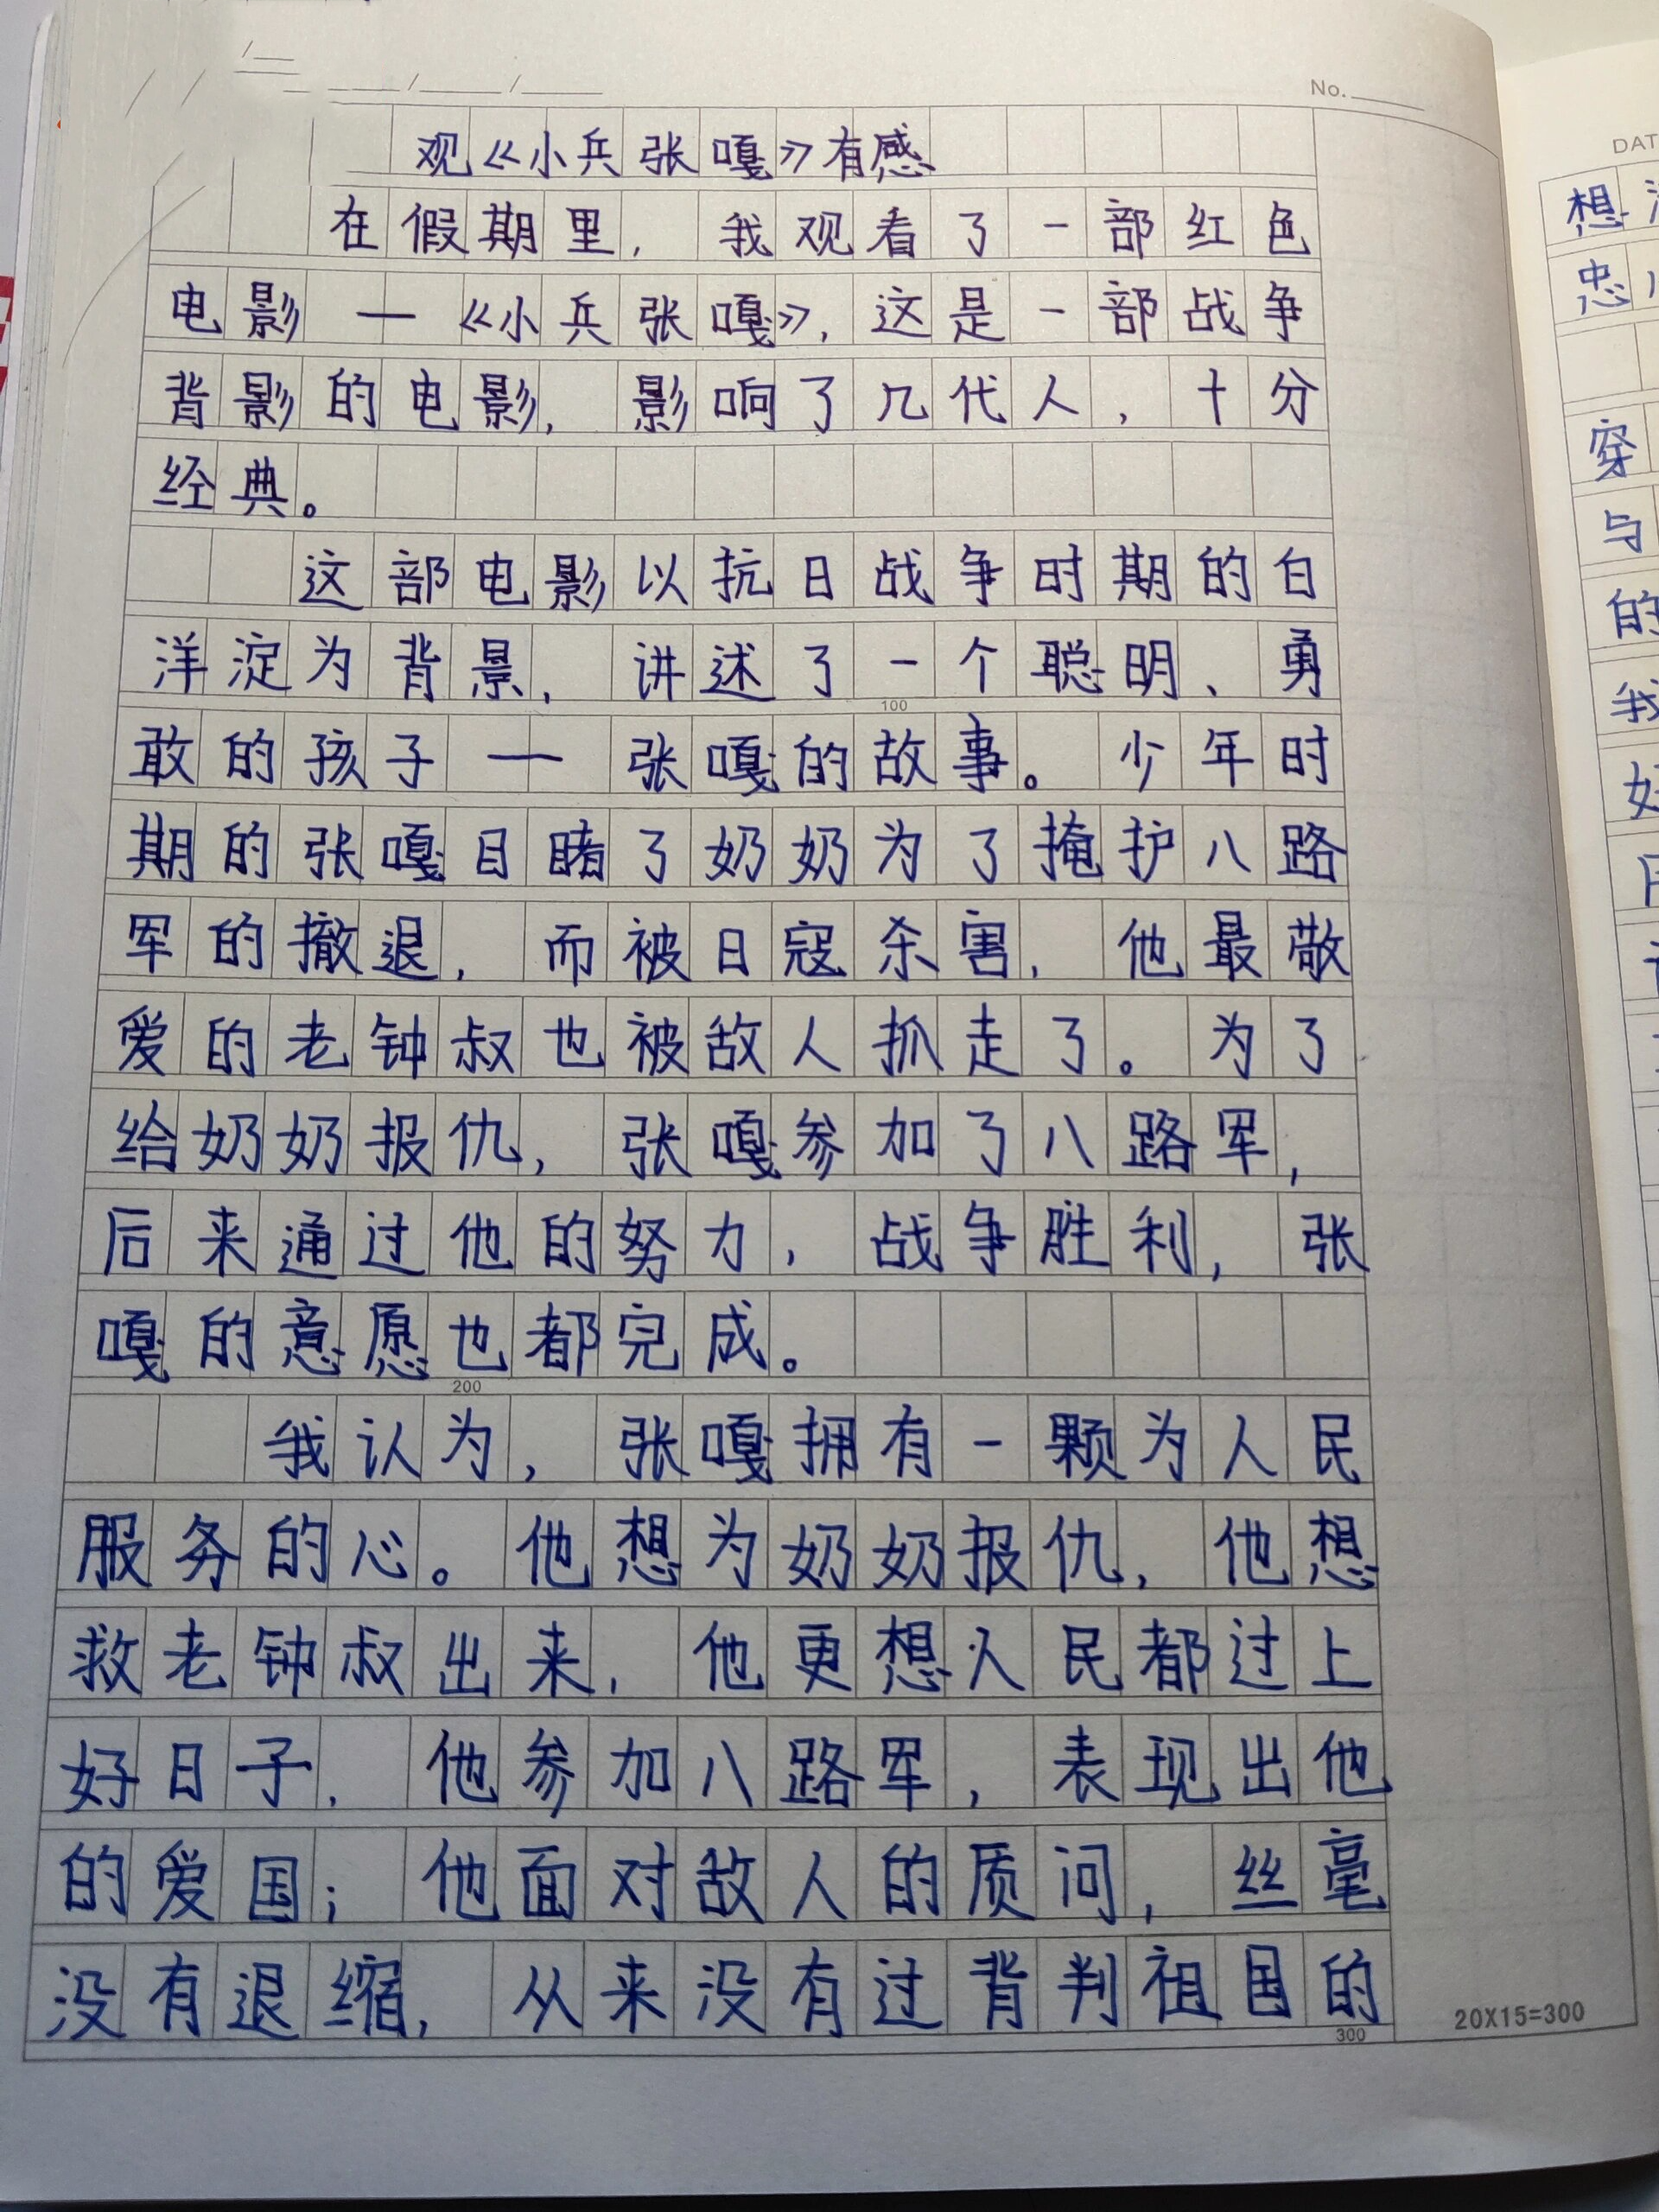 No.
观《小兵张嘎》有感
在假期里，我观看了一部红色
电影—《小兵张嘎》，这是一部战争
背影的电影，影响了几代人，十分
经典。
这部电影以抗日战争时期的白
洋淀为背景，讲述了一个聪明、勇
敢的孩子—张嘎的故事。少年时
期的张嘎目睹了奶奶为了掩护八路
军的撤退，而被日寇杀害，他最敬
爱的老钟叔也被敌人抓走了。为了
给奶奶报仇，张嘎参加了八路军，
后来通过他的努力，战争胜利，张
嘎的意愿也都完成。
我认为，张嘎拥有一颗为人民
服务的心。他想为奶奶报仇，他想
救老钟叔出来，他更想人民都过上
好日子，他参加八路军，表现出他
的爱国；他面对敌人的质问，丝毫
没有退缩，从来没有过背判祖国的
100
200
300
20X15=300
DAT
想
忠
穿
与
的
我
好